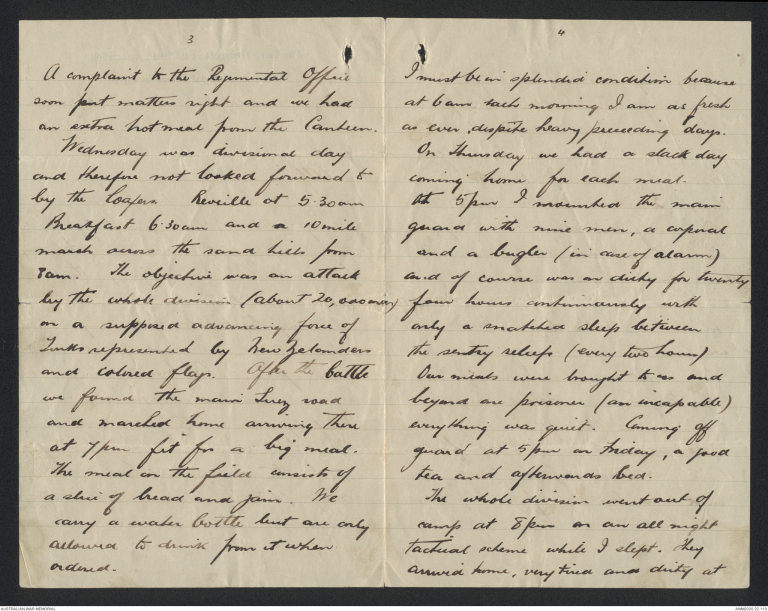 3
A complaint to the Regimental Office
soon put matters right and we had
an extra hot meal from the Canteen.
Wednesday was divisional day
and therefore not looked forward to
by the loafers. Reveille at 5.30am
Breakfast 6.30am and a 10 mile
march across the sand hills from
8am. The objective was an attack
by the whole division (about 20,000 men)
on a supposed advancing force of
Turks represented by New Zelanders
and colored flags. After the battle
we found the main Suez road
and marched home arriving there
at 7pm fit for a big meal.
The meal in the field consists of
a slice of bread and jam. We
carry a water bottle but are only
allowed to drink from it when
ordered.
4
I must be in splendid condition because
at 6am each morning I am as fresh
as ever, despite heavy preceeding days.
On Thursday we had a slack day
coming home for each meal.
At 5pm I mounted the main
guard with nine men, a corporal
and a bugler (in case of alarm)
and of course was on duty for twenty
four hours continuously with
only a snatched sleep between
the sentry reliefs (every two hours)
Our meals were brought to us and
beyond one prisoner (an incapable)
everything was quiet. Coming off
guard at 5pm on Friday, a good
tea and afterwards bed.
The whole division went out of
camp at 8pm on an all night
tactical scheme while I slept. They
arrived home, very tired and dirty at
AUSTRALIAN WAR MEMORIAL